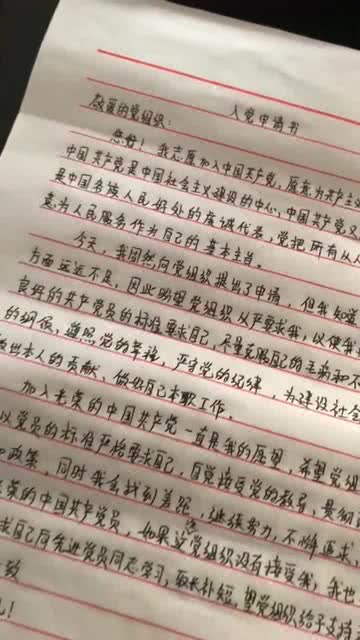 入党申请书
敬爱的党组织：
您好！我志愿加入中国共产党，愿意为共产主义
中国共产党是中国社会主义建设的中心，中国共产党又
是中国各族人民好处的忠诚代表，党把所有从人
意为人民服务作为自己的基本主旨。
今天，我固然向党组织提出了申请，但我知道
方面远远不足，因此盼望党组织从严要求我，以便我
良好的共产党员的标准要求自己，尽量克服自己的主弱和不
的纲领，遵照党的章程，严守党的纪律，为建设社会
做出本人的贡献、做好自己本职工作。
加入光荣的中国共产党一直是我的愿望，希望党组
以党员的标准严格要求自己，自觉接受党的教导，贯彻
政策，同时我会找到差距，继续努力，不懈追求，
光荣的中国共产党员，如果这党组织没有接受我，我也
求自己向先进党员同志学习，取长补短，望党组织给予支持
致
礼！